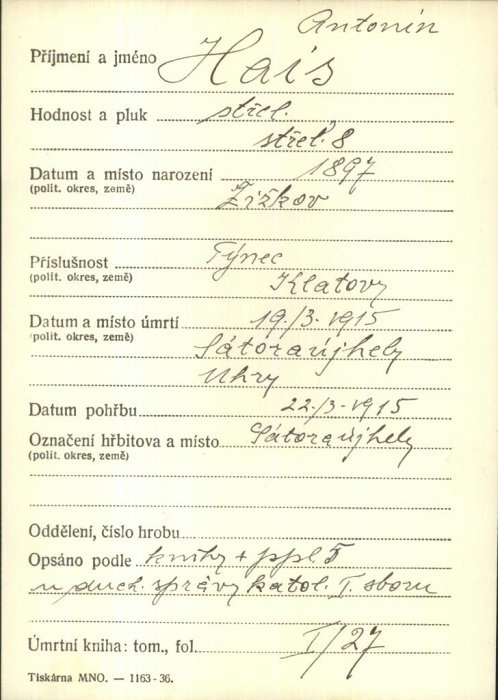 Antonín
Příjmení a jméno Hais
Hodnost a pluk střel.
střel. 8
Datum a místo narození 1897
(polit. okres, země) Žižkov
Příslušnost Týnec
(polit. okres, země) Klatovy
Datum a místo úmrtí 19./3. 1915
(polit. okres, země) Sátoraújhely
Uhry
Datum pohřbu 22./3. 1915
Označení hřbitova a místo Sátoraújhely
(polit. okres, země)
Oddělení, číslo hrobu
Opsáno podle knihy + ppl. 5
u duch. správy katol. I. sboru
Úmrtní kniha: tom., fol. I/27
Tiskárna MNO. — 1163 - 36.